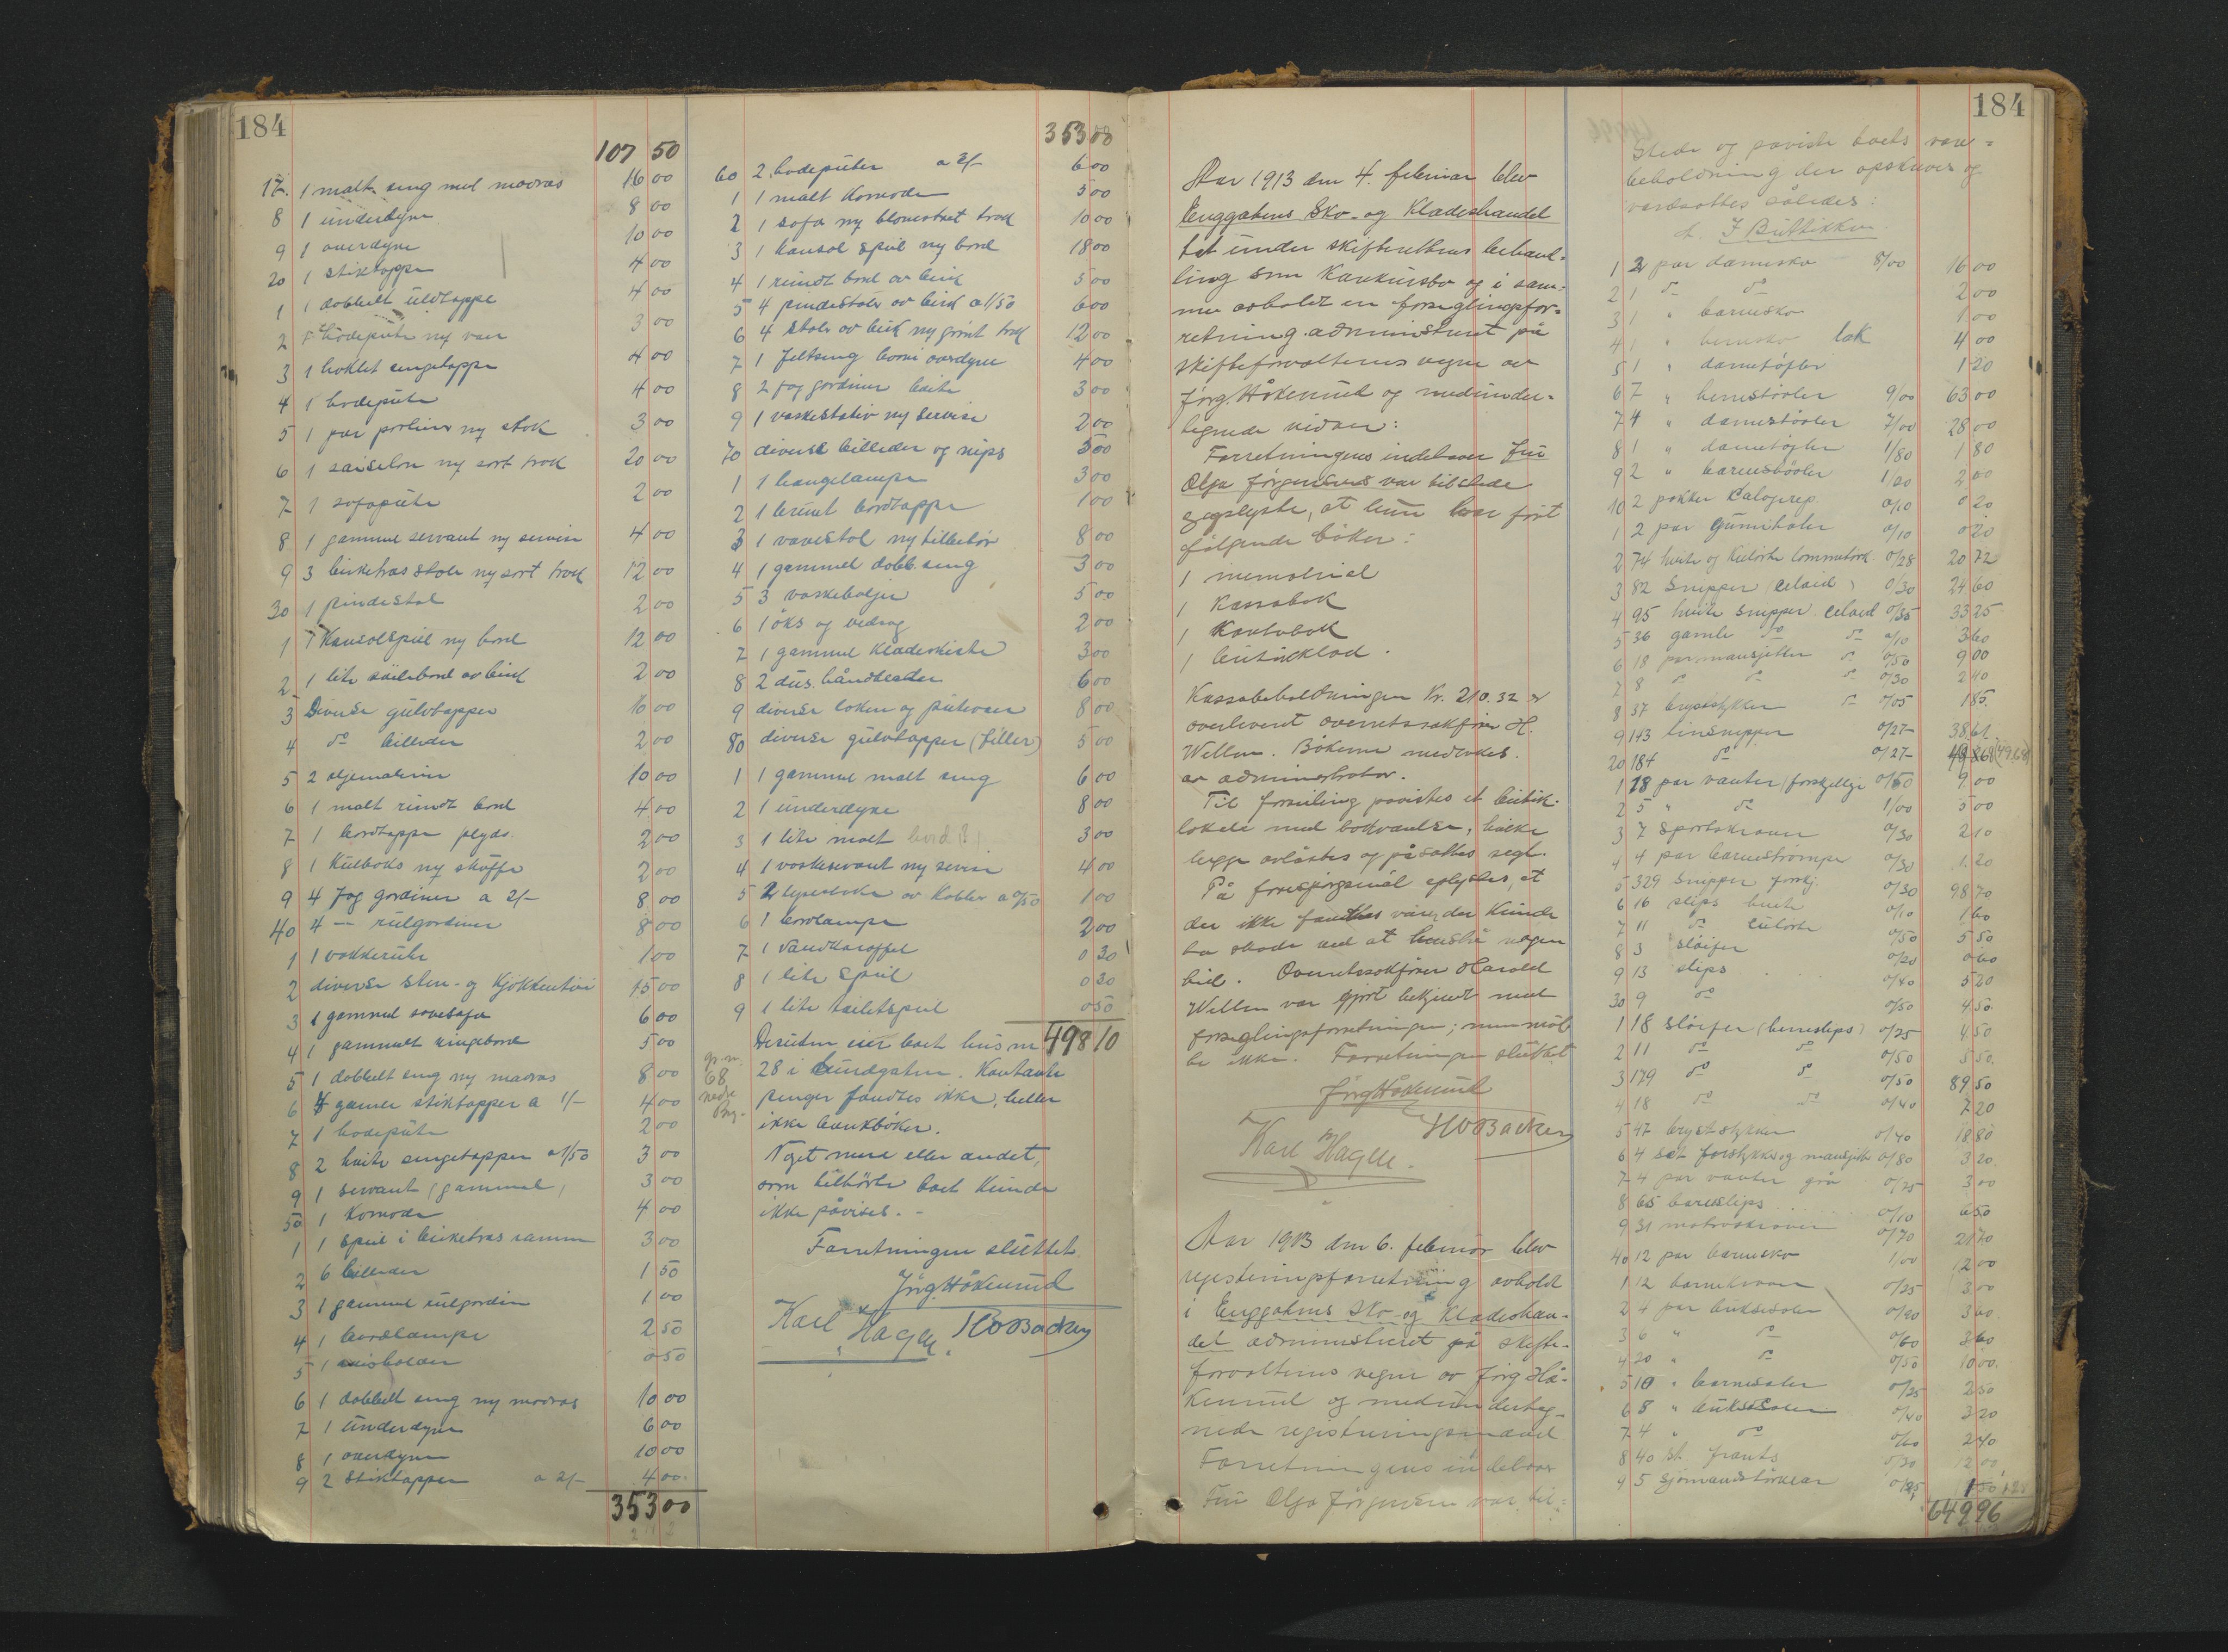 184
107 50
17. 1 malt seng med madras 16 00
8 1 underdyne 8 00
9 1 overdyne 10 00
20 1 stiktæppe 4 00
1 1 dobbelt uldtæppe 4 00
2 hodepute m/ var 3 00
3 1 heklet sengetæppe 4 00
4 1 hodepute 4 00
5 1 par portierer m/ stok 3 00
6 1 saiselon m/ sort træk 20 00
7 1 sofapute 2 00
8 1 gammel servant m/ servise 4 00
9 3 birketræs stole m/ sort træk 12 00
30 1 pindestol 2 00
1 1 Konsolspeil m/ bord 12 00
2 1 lite søilebord av birk 2 00
3 Diverse gulvtæpper 10 00
4 do billeder 2 00
5 2 oljemalerier 10 00
6 1 malt rundt bord 4 00
7 1 bordtæppe plyds. 2 00
8 1 Kulboks m/ skuffe 2 00
9 4 fag gardiner a 2/- 8 00
40 4 -"- rulgardiner 8 00
1 1 vokkerur 1 00
2 diverse sten- og Kjøkkentøi 15 00
3 1 gammel sovesofa 6 00
4 1 gammelt 5 00
5 1 dobbelt seng m/ madras 8 00
6 4 gamle stiktæpper a 1/- 4 00
7 1 hodepute 2 00
8 2 hvite sengetæpper a 1/50 3 00
9 1 servant (gammel) 3 00
50 1 Komode 4 00
1 1 speil i birketræs ramme 3 00
2 6 billeder 1 50
3 1 gammel rulgardin 1 00
4 1 bordlampe 2 50
5 1 0 50
6 1 dobbelt seng m/ madras 10 00
7 1 underdyne 6 00
8 1 overdyne 10 00
9 2 stiktæpper a 2/- 4 00
353 00
353 00
60 2 hodeputer a 3/- 6 00
1 1 malt Komode 5 00
2 1 sofa m/ blomstret træk 10 00
3 1 konsol speil m/ bord 18 00
4 1 rundt bord av birk 5 00
5 4 pindestoler av birk a 1/50 6 00
6 4 stoler av birk m/ grønt træk 12 00
7 1 feltseng overdyne 4 00
8 2 fag gardiner hvite 3 00
9 1 vaskestativ m/ servise 2 00
70 diverse billeder og nips 5 00
1 1 hængelampe 3 00
2 1 brunt bordtæppe 1 00
3 1 vævestol m/ tilbehør 8 00
4 1 gammel dobb. seng 3 00
5 3 vaskebaljer 5 00
6 1 øks og vedsag 2 00
7 1 gammel Klædeskiste 3 00
8 2 dus. håndklæder 6 00
9 diverse laken og putevar 8 00
80 diverse gulvtæpper (filler) 5 00
1 1 gammel malt seng 6 00
2 1 underdyne 8 00
3 1 lite malt bord 3 00
4 1 vaskeservant m/ servise 4 00
5 2 lysestaker av Kobber a 0/50 1 00
6 1 bordlampe 2 00
7 1 Vandkaraffel 0 30
8 1 lite speil 0 30
9 1 lite toiletspeil 0 50
498 10
Desuden eier boet hus nr
28 i Lundgaten. Kontante
gr. nr. 68 nedre
penger fandtes ikke, heller
ikke bankbøker.
Noget mere eller andet,
som tilhørte boet kunde
ikke påvises. -
Forretningen sluttet.
Jørg. Håkenrud
Karl Hagen. H O Backer
184
Aar 1913 den 4. februar blev
Enggatens Sko- og Klædeshandel
tat under skifterettens behand-
ling som Konkursbo og i sam-
me avholdt en forseglingsfor-
retning administreret på
skifteforvalterens vegne av
Jørg. Håkenrud og medunder-
tegnede vidner:
Forretningens indehaver Fru
Olga Jørgensens var tilstede
og oplyste, at hun har ført
følgende bøker:
1 memorial
1 Kassabok
1 Kontobok
1 butikklad.
Kassabeholdningen Kr. 210.32 er
overleveret overretssakfører H.
Wellen. Bøkerne medtodes.
av administrator.
Til forseiling påvistes et butik-
lokale med bakværelse, hvilke
begge avlåstes og påsattes segl.
På forespørgsmål oplystes, at
der ikke fandtes varer, der kunde
ta skade ved at henstå nogen
tid. Overretssakfører Harald
Wellen var gjort bekjendt med
forseglingsforretningen; men møt-
te ikke. Forretningen sluttet
Jørg Håkenrud
Karl Hagen. H O Backer
Aar 1913 den 6. februar blev
registreringsforretning avholdt
i Enggatens Sko- og Klædeshan-
del administreret på skifte-
forvalterens vegne av Jørg Hå-
kenrud og medunderteg-
nede registreringsmænd
Forretningens indehaver
Fru Olga Jørgensen var til-
184
stede og påviste boets vare-
beholdning der opskreves og
værdsattes således:
I Butikken
1 2 par damesko 8/00 16 00
2 1 do do 2 00
3 1 " barnesko 1 00
4 1 " lak 4 00
5 1 " dametøfler 1 20
6 7 " herrestøvler 9/00 63 00
7 4 " damestøvler 7/00 28 00
8 1 " dametøfler 1/80 1 80
9 2 " barnestøvler 1/00 2 00
10 2 pakker 0/10 0 20
1 2 par gumihæler 0/10 0 20
2 74 hvite og kulørte lommetørk 0/28 20 72
3 82 snipper (celoid) 0/30 24 60
4 95 hvite snipper celoid 0/35 33 25
5 36 gamle do do 0/10 3 60
6 18 par mansjetter do 0/50 9 00
7 8 do do do 0/30 2 40
8 37 bryststykker do 0/05 1 85
9 143 linsnipper 0/27 38 61
20 184 do 0/27 49 68 (49.68)
1 18 par vanter (forskjellige) 0/50 9 00
2 5 " do 1/00 5 00
3 7 sportskraver 0/30 2 10
4 4 par barnestrømper 0/30 1 20
5 329 snipper forskj. 0/30 98 70
6 16 slips hvite 0/10 1 60
7 11 do kulørte 0/50 5 50
8 3 sløifer 0/20 0 60
9 13 slips 0/40 5 20
30 9 do 0/50 4 50
1 18 sløifer (herreslips) 0/25 4 50
2 11 do do 0/50 5 50
3 179 do do 0/50 89 50
4 18 do do 0/40 7 20
5 47 bryststykker 0/40 18 80
6 4 sæt forstykker og mansjetter 0/80 3 20
7 4 par vanter grå 0/75 3 00
8 65 barneslips 0/10 6 50
9 31 matroskraver 0/70 21 70
40 12 par barnesko 1/00 12 00
1 12 barnekraver 0/25 3 00
2 4 par buksesæler 0/90 3 60
3 6 " do 0/60 3 60
4 20 " do 0/50 10 00
5 10 " barnesæler 0/25 2 50
6 8 " buksesæler 0/40 3 20
7 4 " do 0/60 2 40
8 40 st. 0/30 12 00
9 5 sjømandstørklær 0/25 1 25
649 96